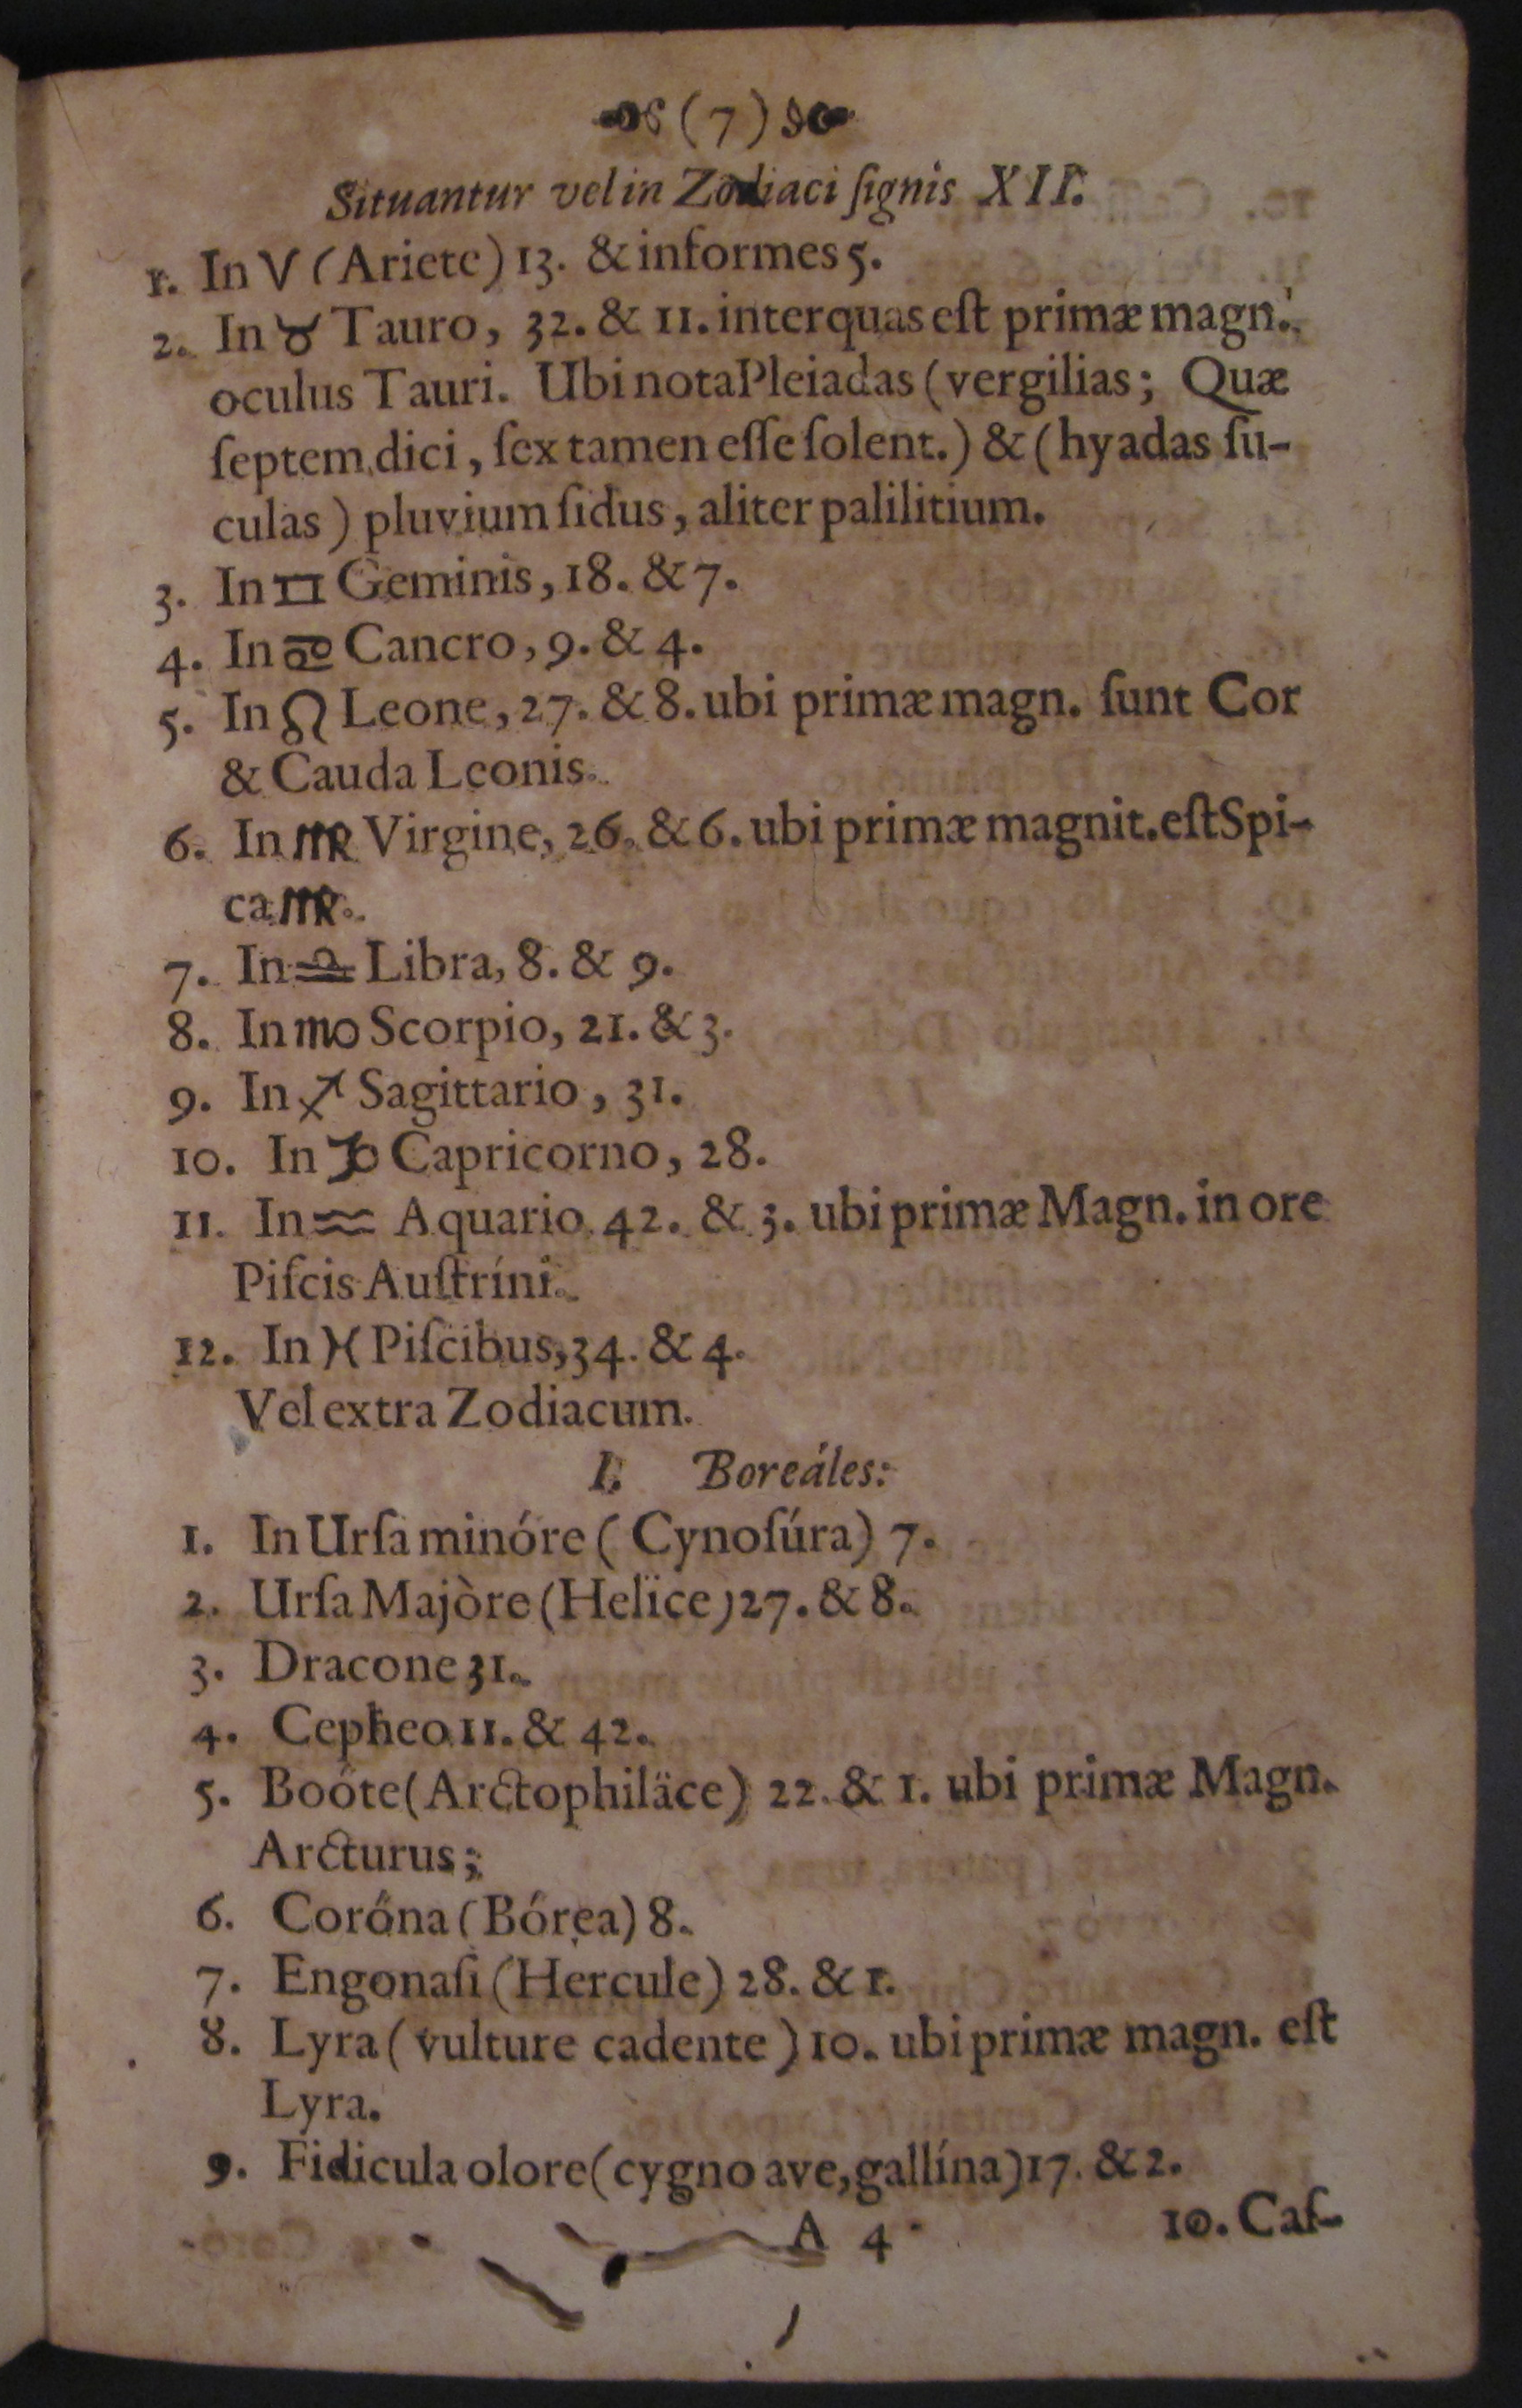 (7)
Situantur vel in Zodiaci ſignis XII.
1. In ♈ (Ariete) 13. & informes 5.
2. In ♉ Tauro, 32. & 11. inter quas eſt primæ magn.
oculus Tauri. Ubi nota Pleiadas (vergilias; Quæ
ſeptem dici, ſex tamen eſſe ſolent.) & (hyadas ſu-
culas) pluvium ſidus, aliter palilitium.
3. In ♊ Geminis, 18. & 7.
4. In ♋ Cancro, 9. & 4.
5. In ♌ Leone, 27. & 8. ubi primæ magn. ſunt Cor
& Cauda Leonis.
6. In ♍ Virgine, 26. & 6. ubi primæ magnit. eſt Spi-
ca ♍.
7. In ♎ Libra, 8. & 9.
8. In ♏ Scorpio, 21. & 3.
9. In ♐ Sagittario, 31.
10. In ♑ Capricorno, 28.
11. In ♒ Aquario 42. & 3. ubi primæ Magn. in ore
Piſcis Auſtríni.
12. In ♓ Piſcibus, 34. & 4.
Vel extra Zodiacum.
I. Boreáles:
1. In Urſa minóre (Cynoſúra) 7.
2. Urſa Majòre (Helïce) 27. & 8.
3. Dracone 31.
4. Cepheo 11. & 42.
5. Boóte (Arctophiläce) 22. & 1. ubi primæ Magn.
Arcturus;
6. Coróna (Bórea) 8.
7. Engonaſi (Hercule) 28. & 1.
8. Lyra (vulture cadente) 10. ubi primæ magn. eſt
Lyra.
9. Fidicula olore (cygno ave, gallína) 17. & 2.
A 4 10. Caſ-